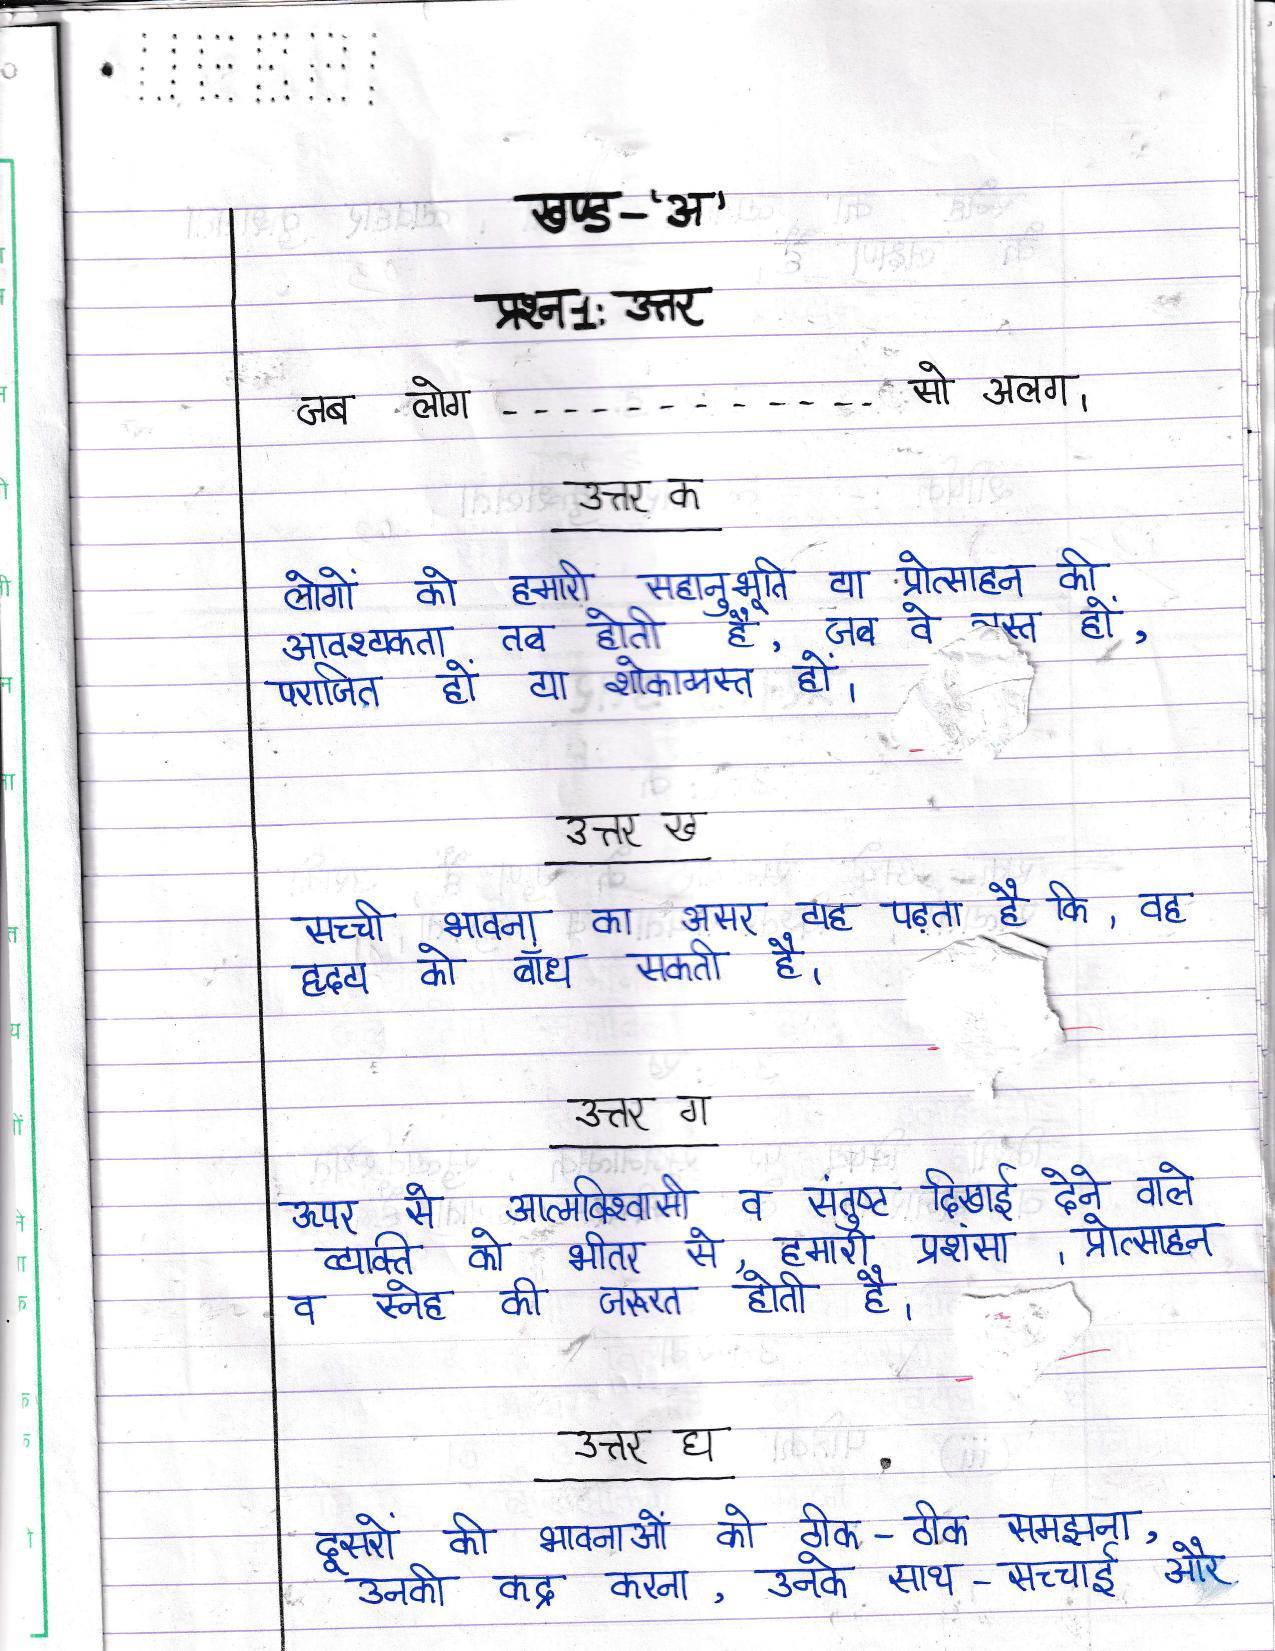 खण्ड-'अ'
प्रश्न1: उत्तर
जब लोग ------------- सो अलग।
उत्तर क
लोगों को हमारी सहानुभूति या प्रोत्साहन की
आवश्यकता तब होती है, जब वे हों,
पराजित हों या शोकाग्रस्त हों।
उत्तर ख
सच्ची भावना का असर यह पढ़ता है कि, वह
हृदय को बाँध सकती है।
उत्तर ग
ऊपर से आत्मविश्वासी व संतुष्ट दिखाई देने वाले
व्यक्ति को भीतर से, हमारी प्रशंसा , प्रोत्साहन
व स्नेह की जरूरत होती है।
उत्तर घ
दूसरों की भावनाओं को ठीक-ठीक समझना,
उनकी कद्र करना, उनके साथ-सच्चाई और